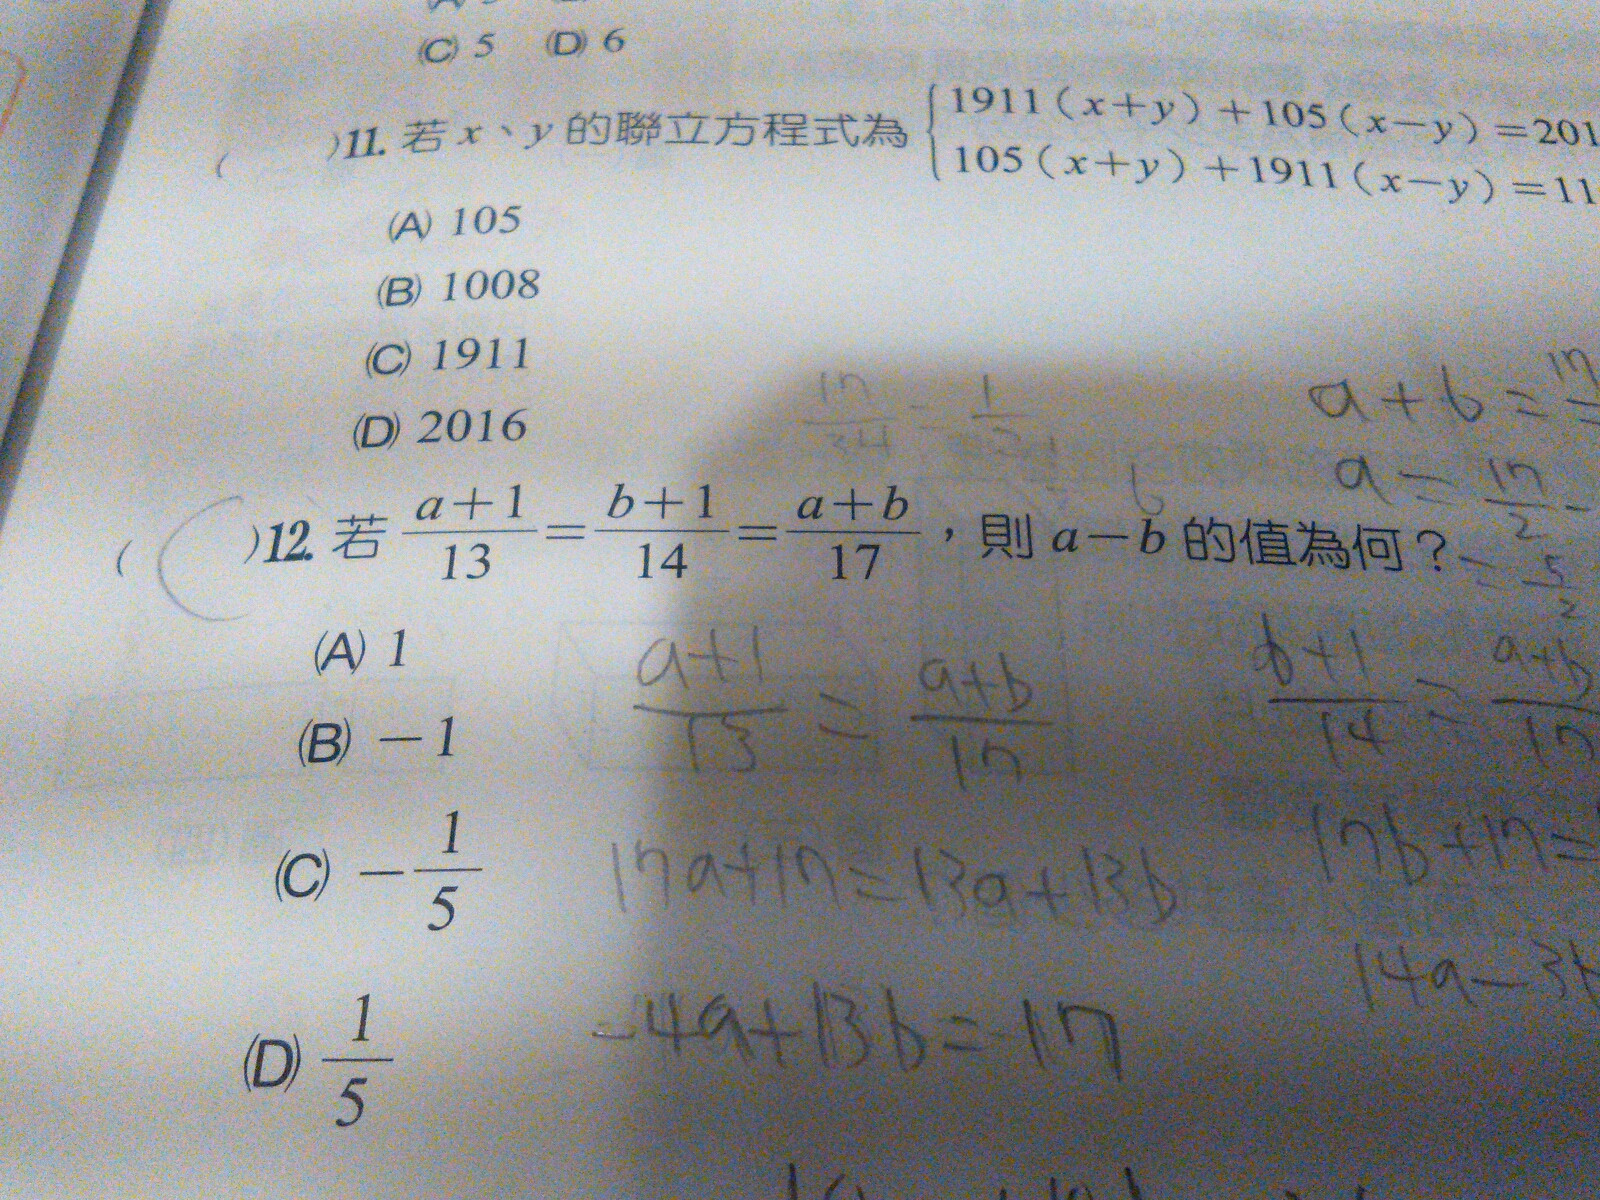 (C) 5 (D) 6
( )11. 若 x、y 的聯立方程式為 { 1911(x+y)+105(x−y)=201
105(x+y)+1911(x−y)=11
(A) 105
(B) 1008
(C) 1911
(D) 2016
17/34 = 1/2
a+b = 17
a = 17/2 -
= 5/2
( )12. 若 (a+1)/13 = (b+1)/14 = (a+b)/17，則 a−b 的值為何？
(A) 1
(B) −1
(C) −1/5
(D) 1/5
(a+1)/13 = (a+b)/17
(b+1)/14 = (a+b)/17
17a+17=13a+13b
17b+17=
14a-3b
-4a+13b=17